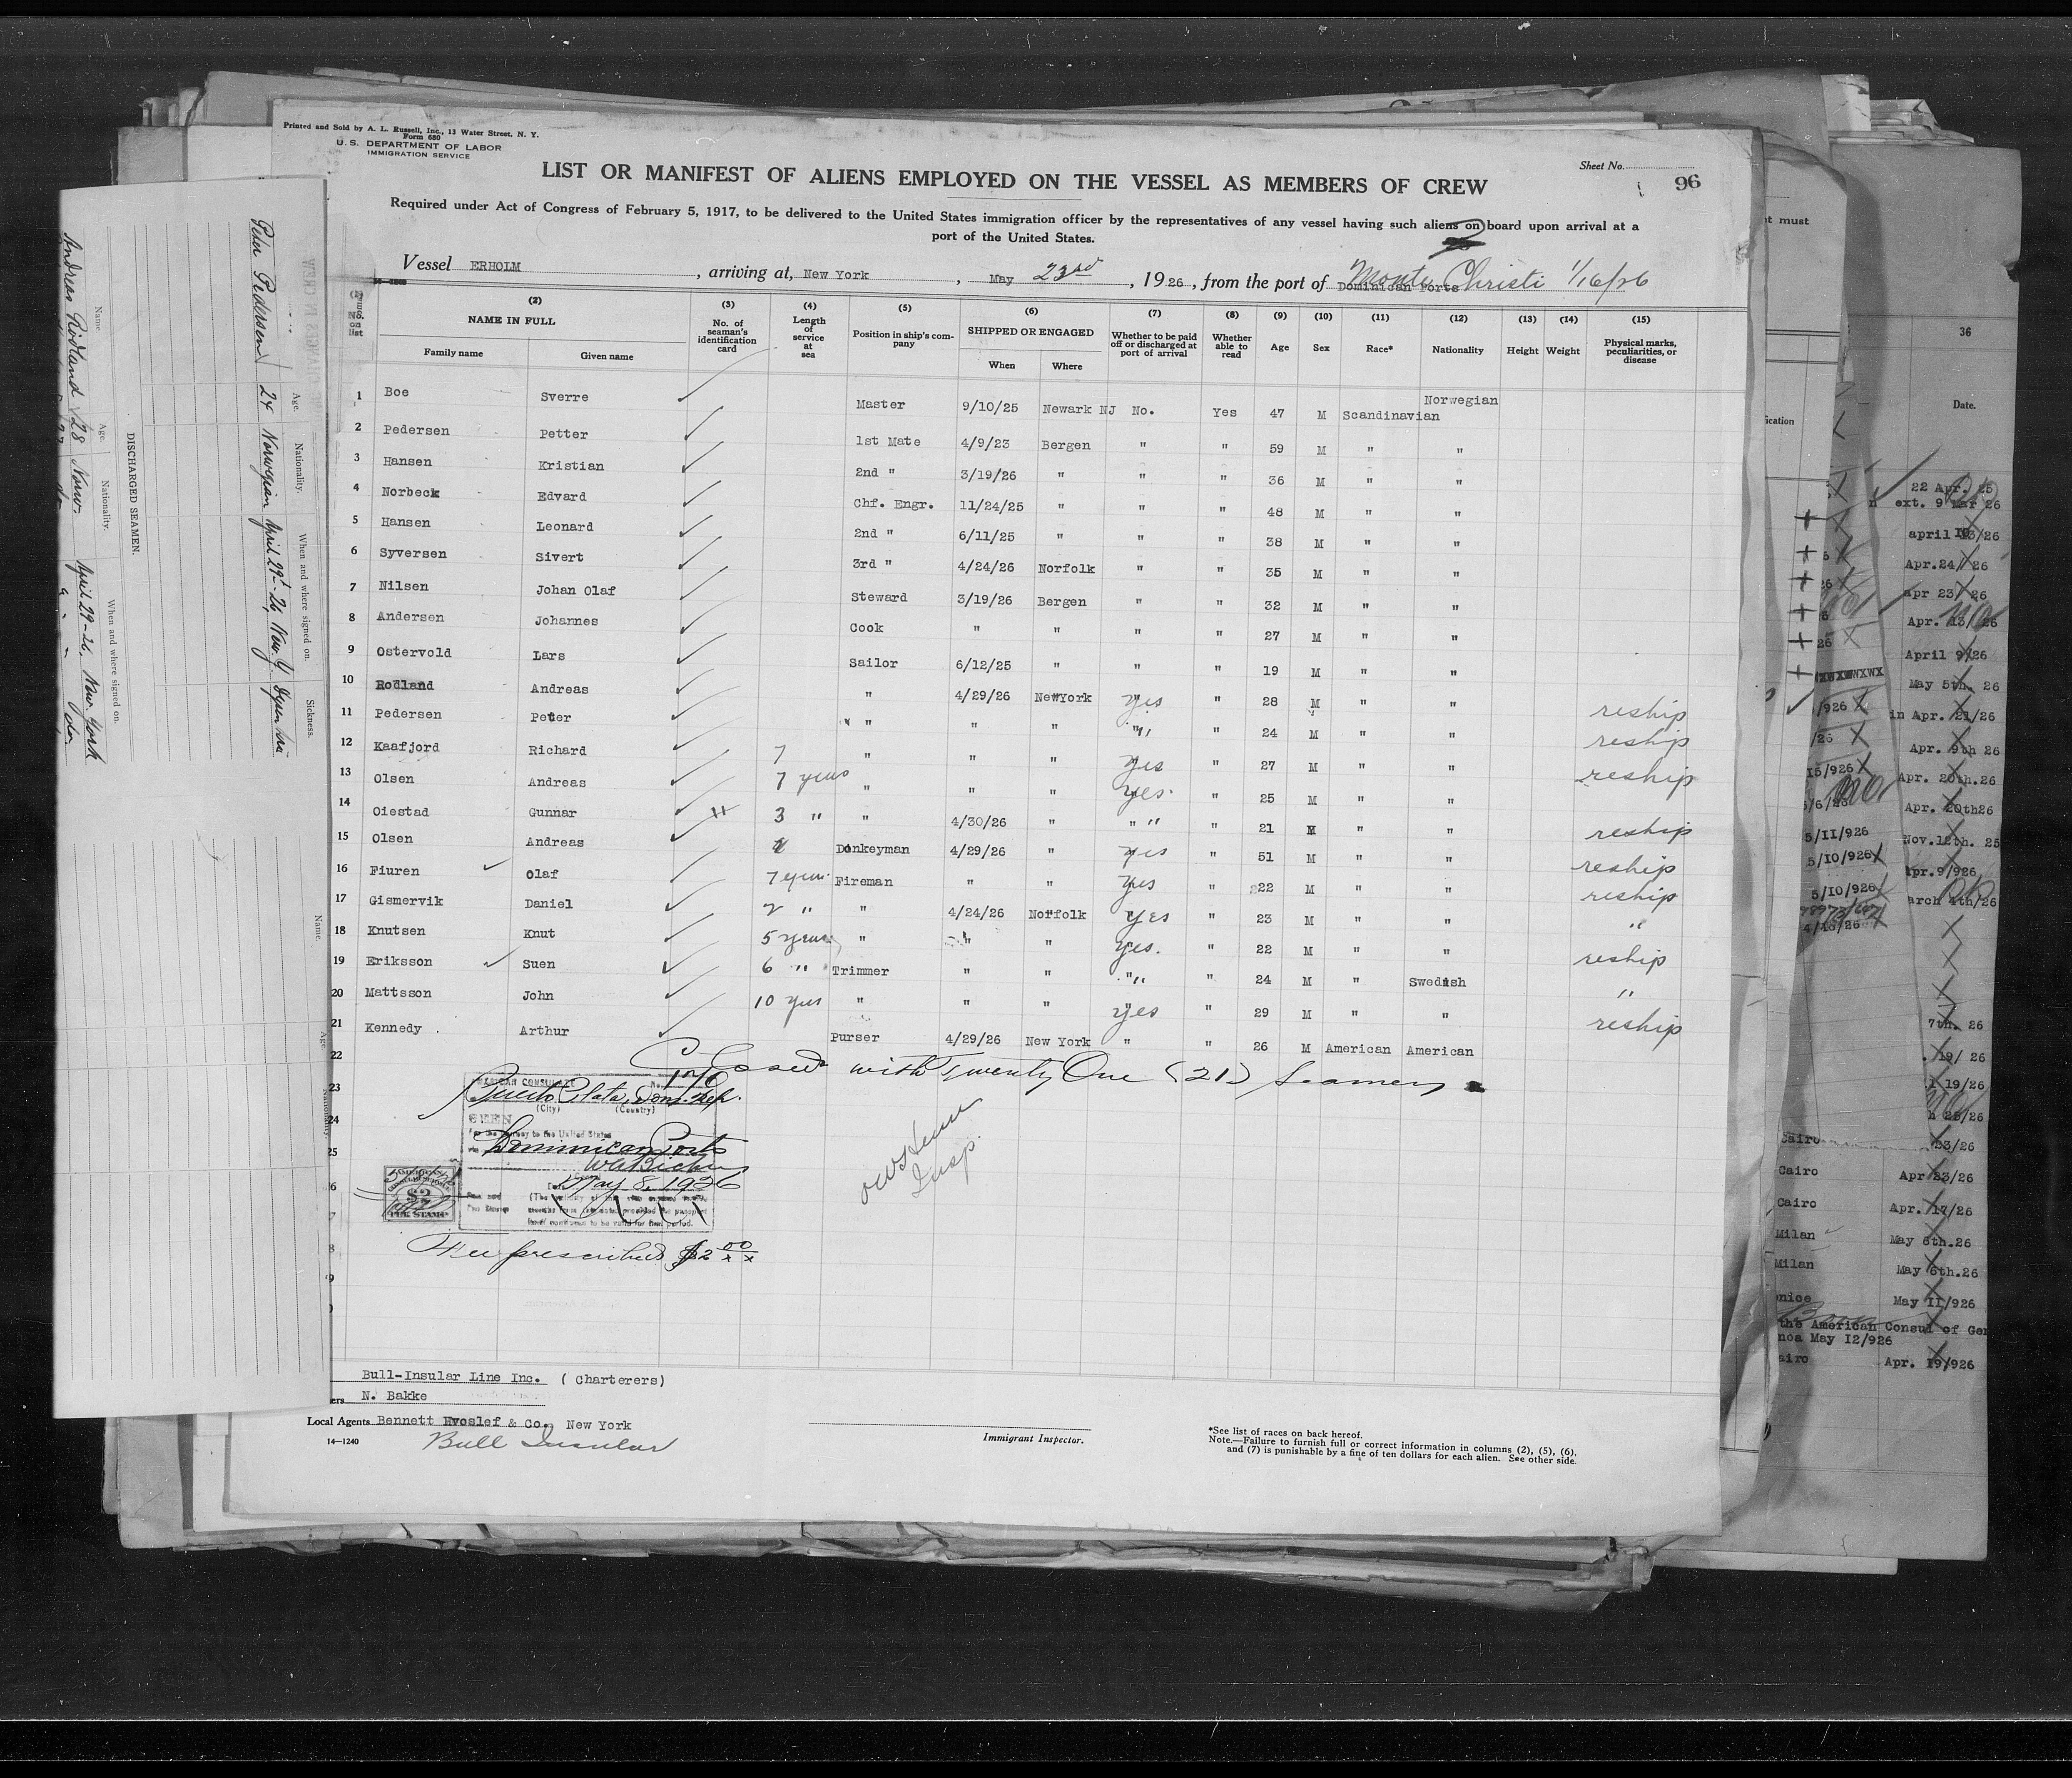 Printed and Sold by A. L. Russell, Inc., 13 Water Street, N. Y.
Form 680
U. S. DEPARTMENT OF LABOR
IMMIGRATION SERVICE
Sheet No.
96
LIST OR MANIFEST OF ALIENS EMPLOYED ON THE VESSEL AS MEMBERS OF CREW
Required under Act of Congress of February 5, 1917, to be delivered to the United States immigration officer by the representatives of any vessel having such aliens on board upon arrival at a
port of the United States.
Vessel ERHOLM, arriving at, New York, May 23rd, 1926, from the port of Dominican Ports Monte Christi 1/16/26
(1) No. on list (2) NAME IN FULL Family name Given name (3) No. of seaman's identification card (4) Length of service at sea (5) Position in ship's company (6) SHIPPED OR ENGAGED When Where (7) Whether to be paid off or discharged at port of arrival (8) Whether able to read (9) Age (10) Sex (11) Race* (12) Nationality (13) Height (14) Weight (15) Physical marks, peculiarities, or disease
1 Boe Sverre Master 9/10/25 Newark NJ No. Yes 47 M Scandinavian Norwegian
2 Pedersen Petter 1st Mate 4/9/23 Bergen " " 59 M " "
3 Hansen Kristian 2nd " 3/19/26 " " " 36 M " "
4 Norbeck Edvard Chf. Engr. 11/24/25 " " " 48 M " "
5 Hansen Leonard 2nd " 6/11/25 " " " 38 M " "
6 Syversen Sivert 3rd " 4/24/26 Norfolk " " 35 M " "
7 Nilsen Johan Olaf Steward 3/19/26 Bergen " " 32 M " "
8 Andersen Johannes Cook " " " " 27 M " "
9 Ostervold Lars Sailor 6/12/25 " " " 19 M " "
10 Rodland Andreas " 4/29/26 NewYork yes " 28 M " " reship
11 Pedersen Peter " " " " " 24 M " " reship
12 Kaafjord Richard 7 " " " yes " 27 M " " reship
13 Olsen Andreas 7 years " " " yes. " 25 M " "
14 Oiestad Gunnar 3 " " 4/30/26 " " " 21 M " " reship
15 Olsen Andreas Donkeyman 4/29/26 " yes " 51 M " " reship
16 Fiuren Olaf 7 years Fireman " " yes " 22 M " " reship
17 Gismervik Daniel 2 " " 4/24/26 Norfolk yes " 23 M " " "
18 Knutsen Knut 5 years " " " yes. " 22 M " " reship
19 Eriksson Suen 6 " Trimmer " " " " 24 M " Swedish "
20 Mattsson John 10 yrs " " " yes " 29 M " " reship
21 Kennedy Arthur Purser 4/29/26 New York " " 26 M American American
22 Closed with Twenty One (21) Seamen
23
24
25
AMERICAN CONSULATE
Puerto Plata, Dom. Rep.
(City) (Country)
SEEN
For the journey to the United States
Dominican Ports
May 8, 1926
$2
FEE STAMP
Fee prescribed $2 00
Insp.
Bull-Insular Line Inc. ( Charterers)
N. Bakke
Local Agents Bennett Hvoslef & Co. New York
Bull Insular
14—1240
Immigrant Inspector.
*See list of races on back hereof.
Note.—Failure to furnish full or correct information in columns (2), (5), (6),
and (7) is punishable by a fine of ten dollars for each alien. See other side.
DISCHARGED SEAMEN.
Name. Age. Nationality. When and where signed on. Sickness.
Peter Pedersen 24 Norwegian April 29-26, New Y
Andreas Rodland 28 Norw. April 29-26, New York
36
Date.
22 Apr. 25
ext. 9 Mar 26
april 13/26
Apr.24/ 26
apr 23/ 26
Apr. 13/ 26
April 9/26
May 5th. 26
in Apr. 21/26
Apr. 9th 26
Apr. 20th.26
Apr. 20th26
Nov.12th. 25
Apr.9/926
arch 4th/26
5/11/926
5/10/926
5/10/926
7th. 26
19/ 26
19/26
23/26
Cairo
Cairo Apr 23/26
Cairo Apr. 17/26
Milan May 6th.26
Milan May 6th.26
nice May 11/926
the American Consul of Gen
noa May 12/926
airo Apr. 19/926